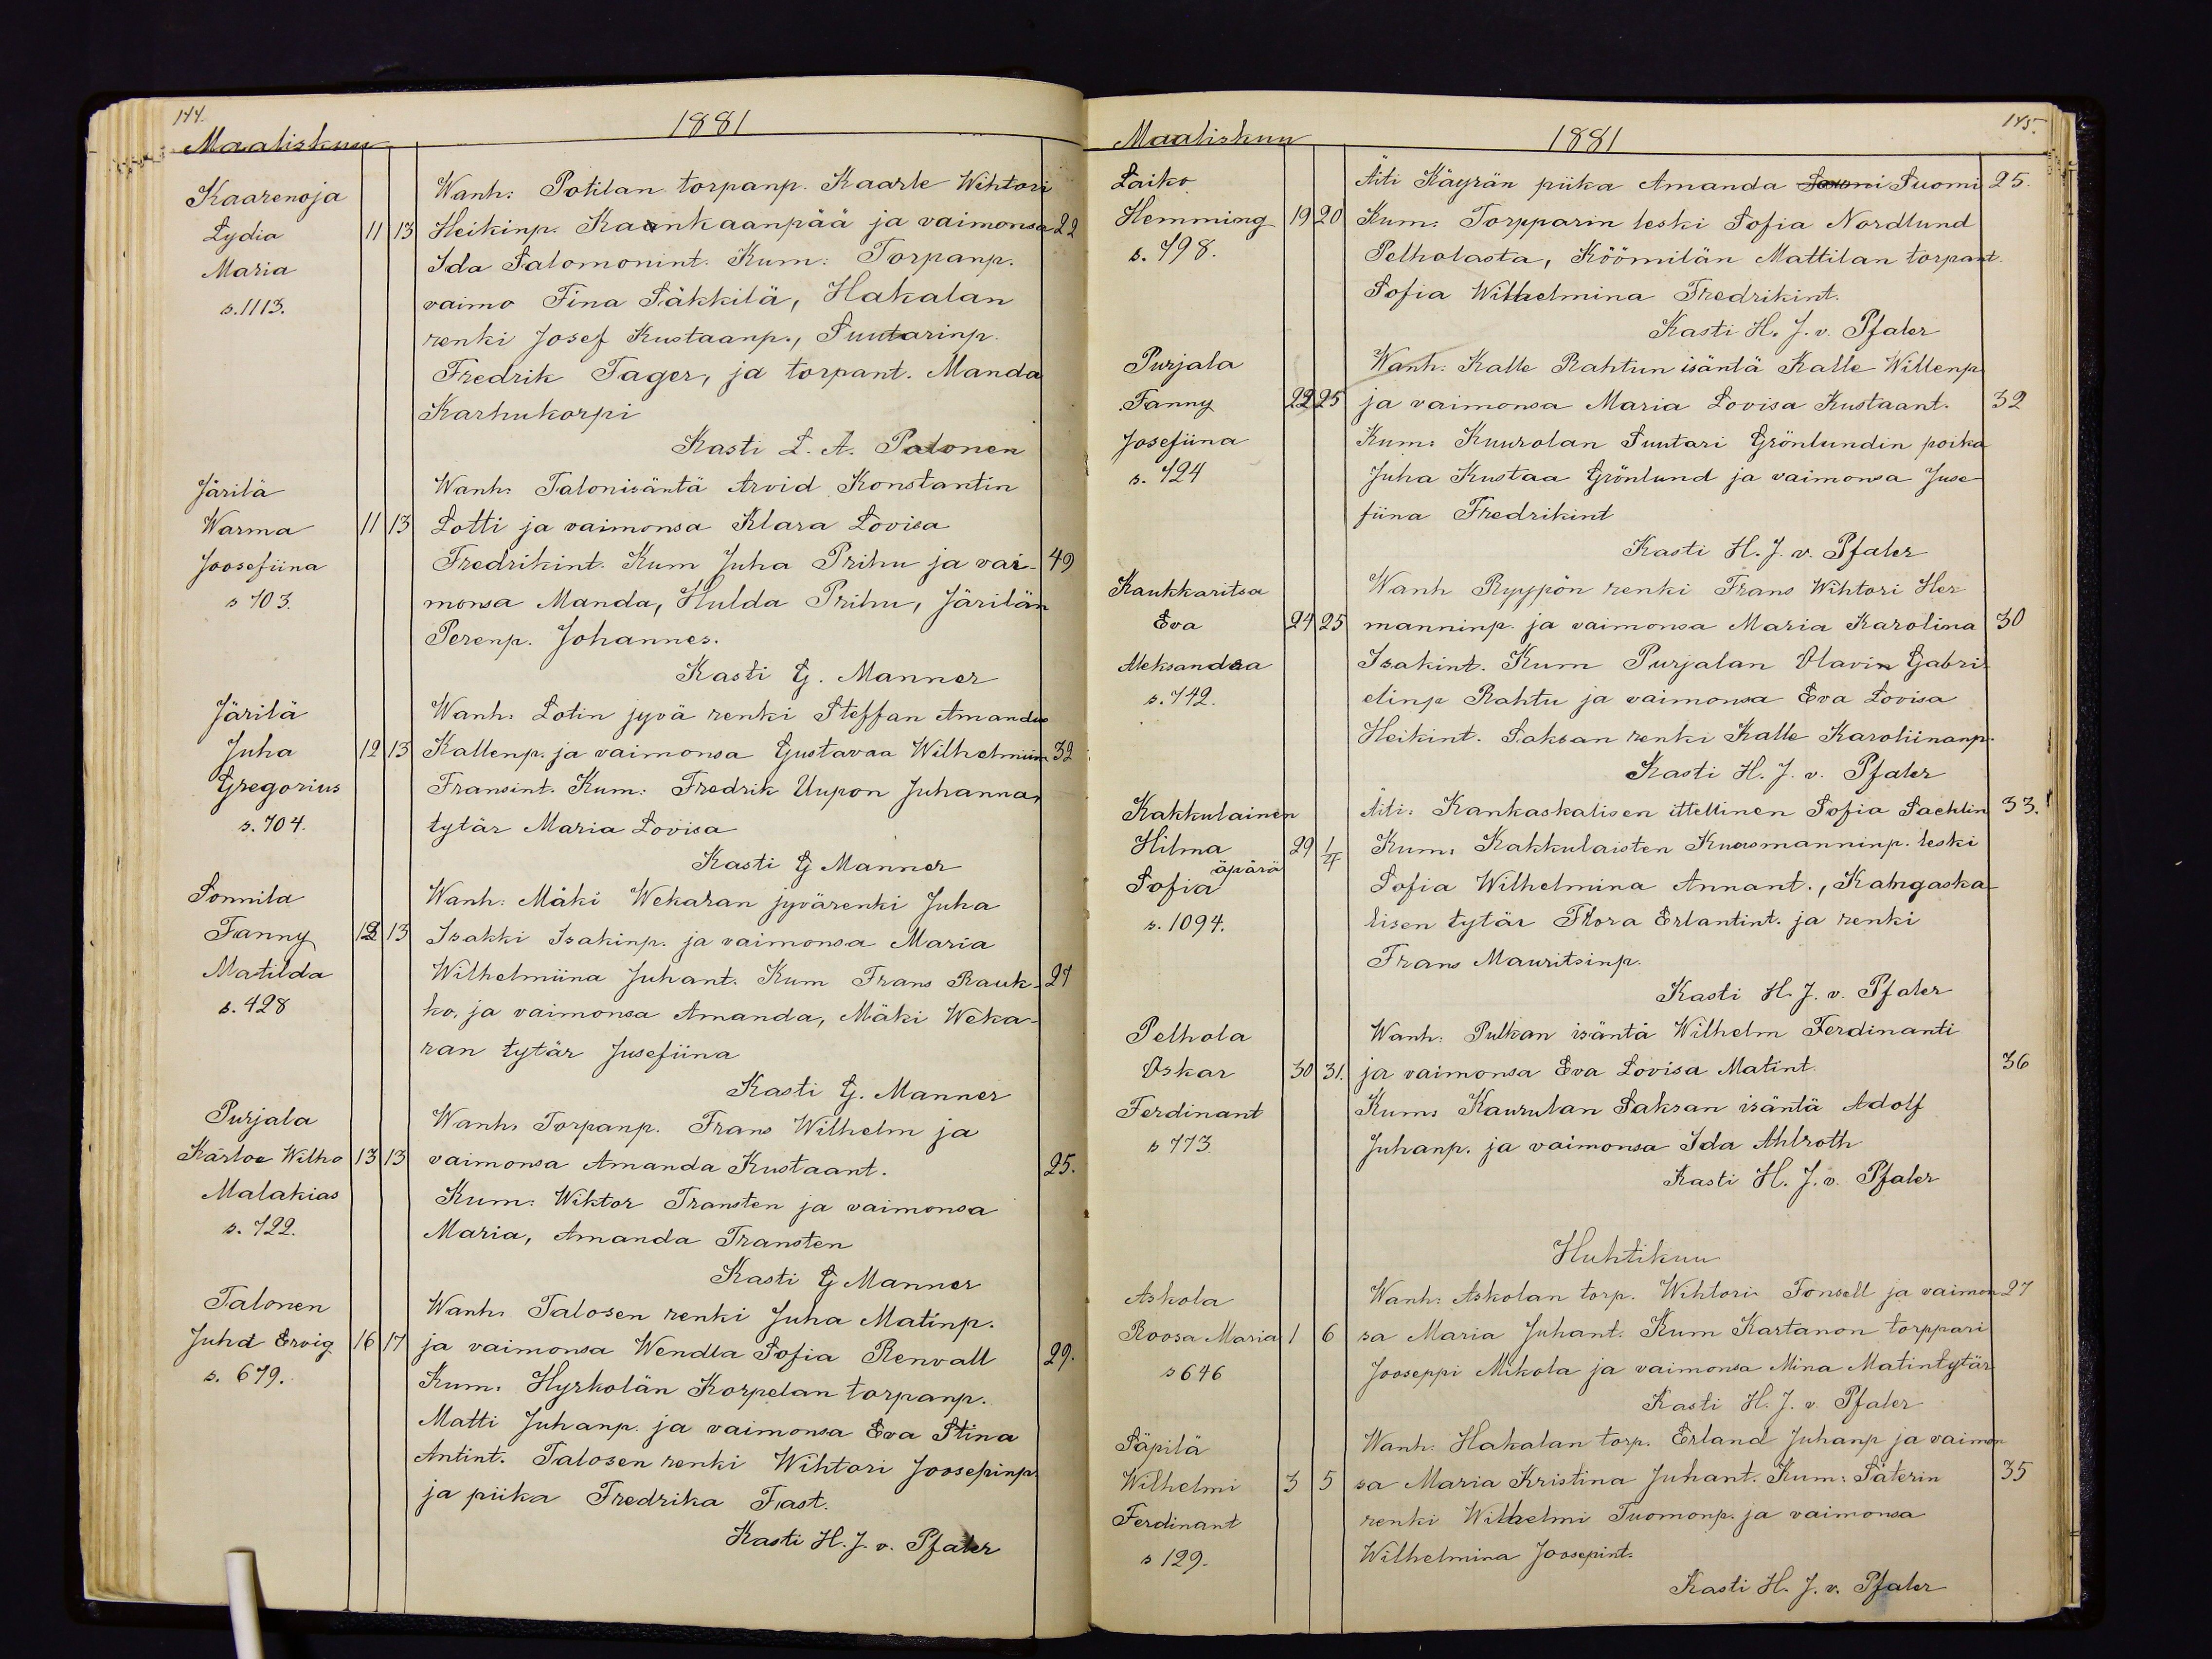 144.
Maaliskuu
1881
Kaarenoja
Lydia 11 13
Maria
s. 1113.
Wanh: Potilan torpanp. Kaarle Wihtori
Heikinp. Kaankaanpää ja vaimonsa 22
Ida Salomonint. Kum: Torpanp.
vaimo Fina Säkkilä, Hakalan
renki Josef Kustaanp., Suutarinp.
Fredrik Tager, ja torpant. Manda
Karhukorpi
Kasti L. A. Palonen
Järilä
Warma 11 13
Joosefiina
s 703.
Wanh: Talonisäntä Arvid Konstantin
Lotti ja vaimonsa Klara Lovisa
Fredrikint. Kum Juha Prihu ja vai- 49
monsa Manda, Hulda Prihu, Järilän
Perenp. Johannes.
Kasti G. Manner
Järilä
Juha 12 13
Gregorius
s. 704.
Wanh: Lotin jyvä renki Steffan Amandus
Kallenp. ja vaimonsa Gustavaa Wilhelmiin 32
Fransint. Kum: Fredrik Uupon Juhannan
tytär Maria Lovisa
Kasti G Manner
Sonnila
Fanny 12 13
Matilda
s. 428
Wanh: Mäki Wekaran jyvärenki Juha
Isakki Isakinp. ja vaimonsa Maria
Wilhelmiina Juhant. Kum Frans Rauk- 27
ko, ja vaimonsa Amanda, Mäki Weka-
ran tytär Jusefiina
Kasti G. Manner
Purjala
Kaarloe Wilho 13 13
Malakias
s. 722.
Wanh: Torpanp. Frans Wilhelm ja
vaimonsa Amanda Kustaant. 25.
Kum: Wiktor Fransten ja vaimonsa
Maria, Amanda Fransten
Kasti G Manner
Talonen
Juha Ervig 16 17
s. 679.
Wanh: Talosen renki Juha Matinp.
ja vaimonsa Wendla Sofia Renvall 29.
Kum: Hyrkolän Korpelan torpanp.
Matti Juhanp. ja vaimonsa Eva Stina
Antint. Talosen renki Wihtori Joosepinp
ja piika Fredrika Fast.
Kasti H. J. v. Pfaler
145.
Maaliskuu
1881
Laiko
Hemming 19 20
s. 798.
Äiti Käyrän piika Amanda Suomi 25.
Kum: Torpparin leski Sofia Nordlund
Pelholasta, Köömilän Mattilan torpant.
Sofia Wilhelmina Fredrikint.
Kasti H. J. v. Pfaler
Purjala
Fanny 22 25
Josefiina
s. 724
Wanh: Kalle Rahtun isäntä Kalle Willenp
ja vaimonsa Maria Lovisa Kustaant. 32
Kum: Kuurolan Suutari Grönlundin poika
Juha Kustaa Grönlund ja vaimonsa Juse
fiina Fredrikint
Kasti H. J. v. Pfaler
Kaukkaritsa
Eva 24 25
Aleksandra
s. 742.
Wanh Ryypön renki Frans Wihtori Her
manninp. ja vaimonsa Maria Karolina 30
Isakint. Kum Purjalan Olavin Gabri-
elinp Rahtu ja vaimonsa Eva Lovisa
Heikint. Saksan renki Kalle Karoliinanp.
Kasti H. J. v. Pfaler
Kakkulainen
Hilma 29 1/4
äpärä
Sofia
s. 1094.
Äiti: Kankaskalisen ittellinen Sofia Saehlin 33.
Kum: Kakkulaisten Kuasmanninp. leski
Sofia Wilhelmina Annant., Kangaska-
lisen tytär Flora Erlantint. ja renki
Frans Mauritsinp.
Kasti H. J. v. Pfaler
Pelhola
Oskar 30 31.
Ferdinant
s 773.
Wanh: Pulkan isäntä Wilhelm Ferdinanti
ja vaimonsa Eva Lovisa Matint. 36
Kum: Kaurulan Saksan isäntä Adolf
Juhanp. ja vaimonsa Ida Ahlroth
Kasti H. J. v. Pfaler
Huhtikuu
Askola
Roosa Maria 1 6
s 646
Wanh: Askolan torp. Wihtori Fonsell ja vaimon 27
sa Maria Juhant. Kum Kartanon torppari
Jooseppi Mikola ja vaimonsa Mina Matintytär
Kasti H. J. v. Pfaler
Säpilä
Wilhelmi 3 5
Ferdinant
s 129.
Wanh: Hakalan torp. Erland Juhanp ja vaimon
sa Maria Kristina Juhant. Kum: Säterin 35
renki Wilhelmi Tuomonp. ja vaimonsa
Wilhelmina Joosepint.
Kasti H. J. v. Pfaler